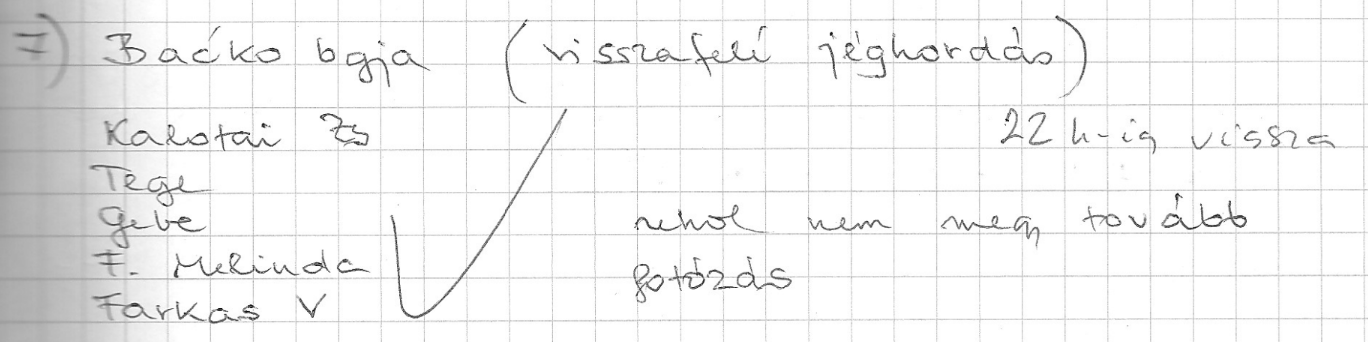 7) Backo bgja (visszafelé jéghordás)
Kalotai Zs
22 h-ig vissza
Tege
Gebe
sehol nem megy tovább
F. Melinda
fotózás
Farkas V